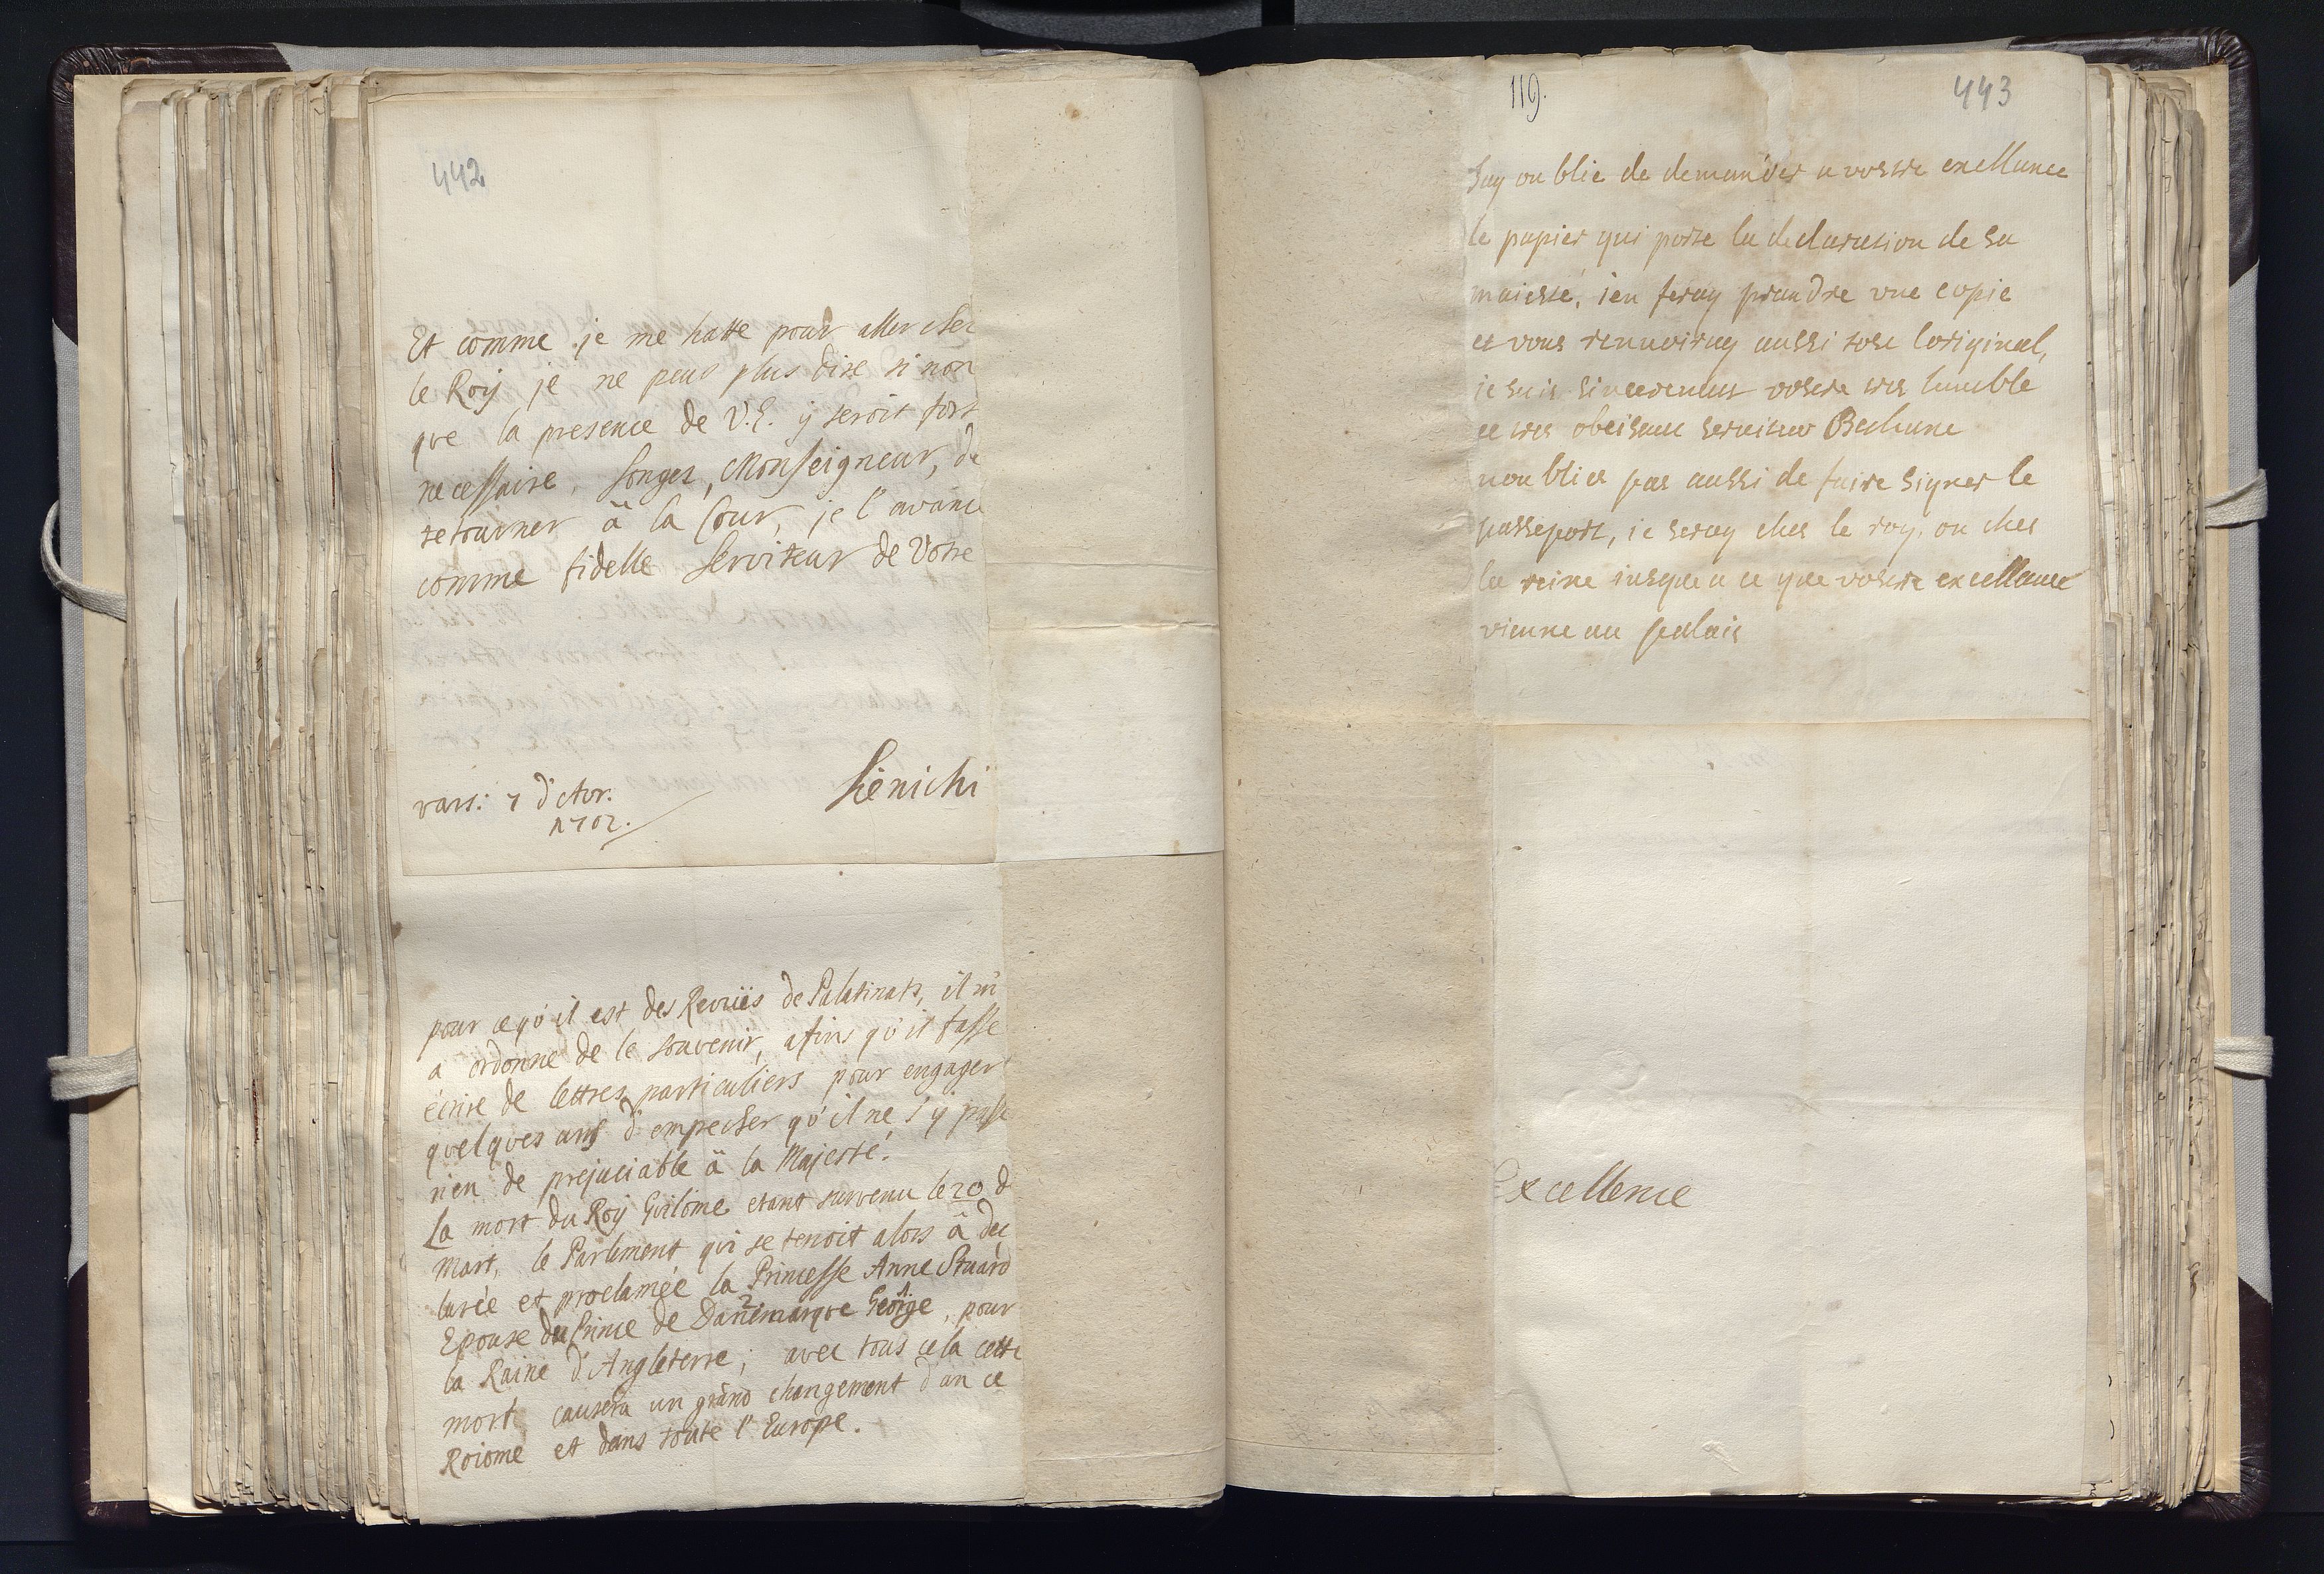 442
Et comme je me hatte pour aller cher
le Roy je ne peus plus dire si non
que la presence de V.E. y seroit fort
necessaire, songez, Monseigneur, de
retourner â la Cour, je l'avance
comme fidelle serviteur de Votre
vars: 7 d'Avr.
1702.
Siènichi
pour ce qu'il est des Revües de Palatinats, il m'
a ordonne de le souvenir, afins qu'il fasse
écrire de lettres particuliers pour engager
quelques uns d'empecher qu'il ne s'y passe
rien de prejuciable â la Majesté.
La mort du Roy Guilôme etant survenu le 20 d
Mart, le Parlement qui se tenoit alors â dec
larée et proclamée la Princesse Anne Stuard
Epouse du Prince de Dannemarque George, pour
la Raine d'Angleterre; avec tous cela cette
mort causera un grand changement dan ce
Roiome et dans toute l'Europe.
119.
443
Jay oublie de demander a vostre exellance
le papier qui porte la declaration de sa
maieste, ien feray prandre vne copie
et vous renuoiray aussi tost loriginal,
ie suis sincerement vostre tres humble
et tres obeisant seruiteur Bethune
noublies pas aussi de faire signer le
passeport, ie seray ches le roy, ou ches
la reine iusque a ce que vostre excellance
vienne au palais
Excellence